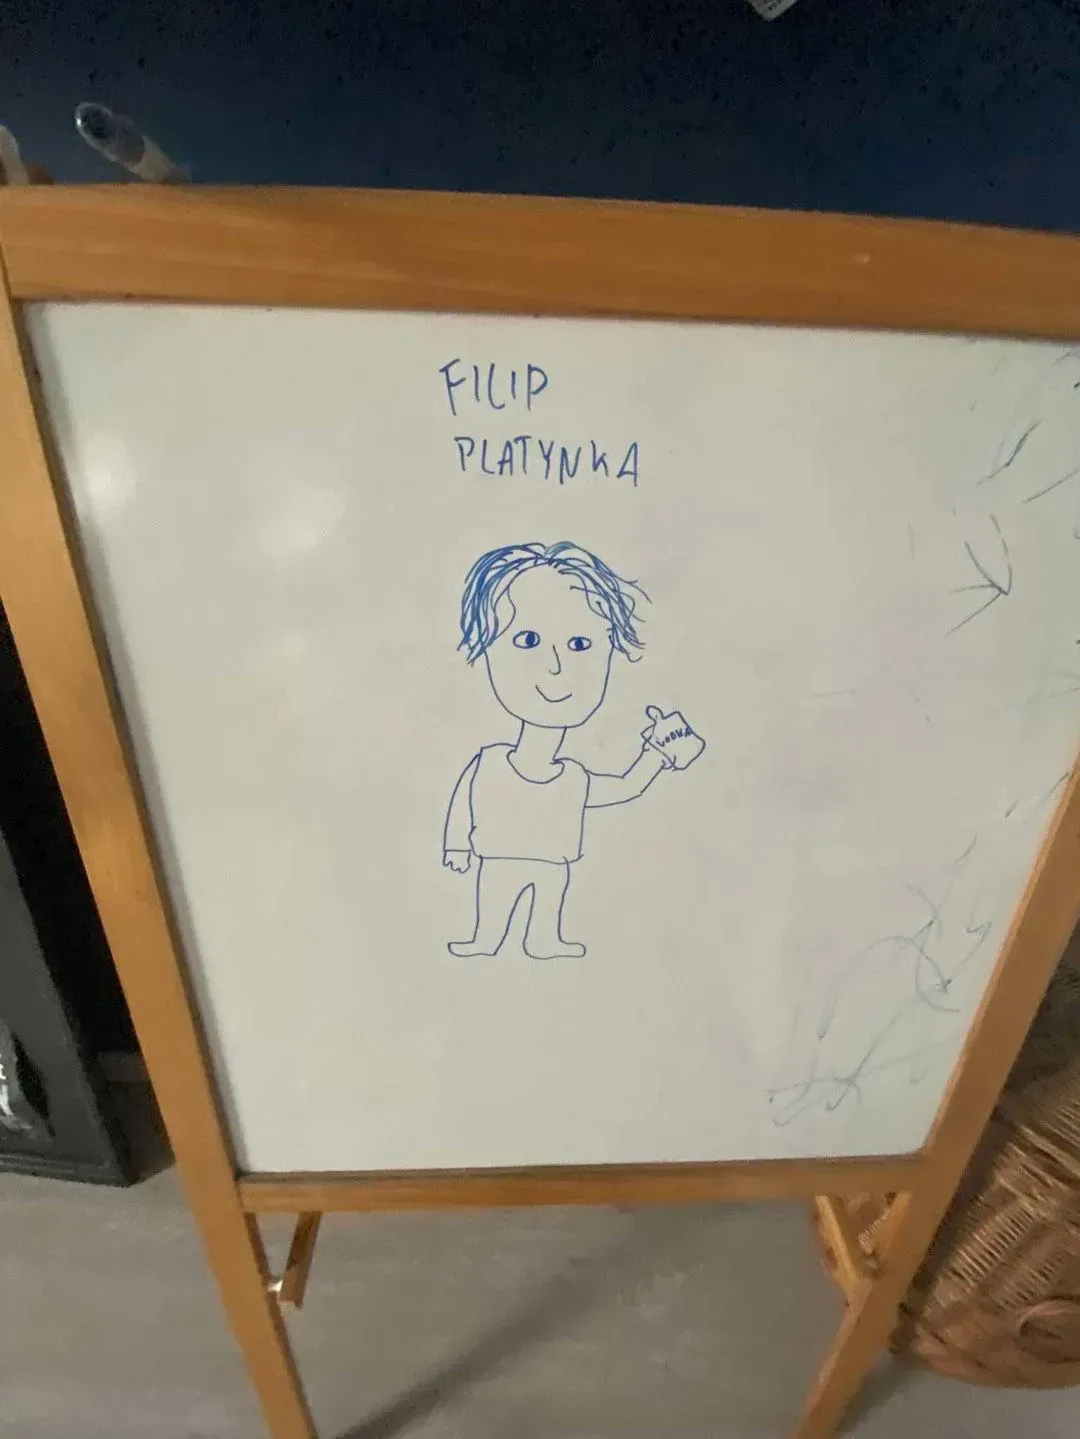 FILIP
PLATYNKA
VODKA